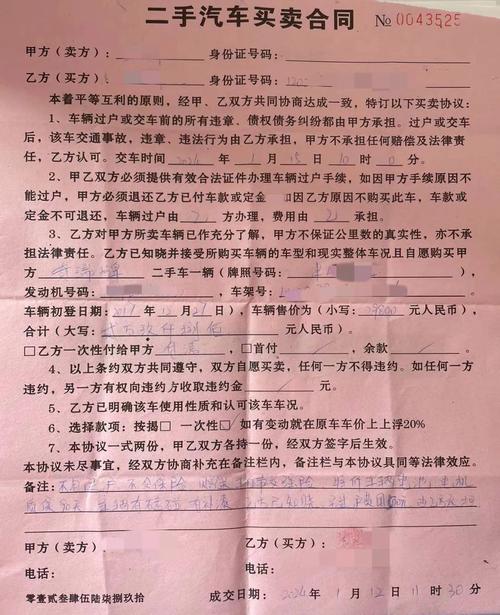 二手汽车买卖合同 No 0043525
甲方(卖方): 身份证号码:
乙方(买方): 身份证号码:
本着平等互利的原则,经甲、乙双方共同协商达成一致,特订以下买卖协议:
1、车辆过户或交车前的所有违章、债权债务纠纷都由甲方承担。过户或交车
后,该车交通事故,违章、违法行为由乙方承担,甲方不承担任何赔偿及法律责
任,乙方认可。交车时间 2024 年 1 月 15 日 10 时 0 分。
2、甲乙双方必须提供有效合法证件办理车辆过户手续,如因甲方手续原因不
能过户,甲方必须退还乙方已付车款或定金 如因乙方原因不购买此车,车款或
定金不可退还,车辆过户由 乙 方办理,费用由 乙 承担。
3、乙方对甲方所卖车辆已作充分了解,甲方不保证公里数的真实性,亦不承
担法律责任。乙方已知晓并接受所购买车辆的车型和现实整体车况且自愿购买甲
方 二手车一辆(牌照号码:
发动机号码: 车架号:
车辆初登日期: 2017 年 12 月 29 日),车辆售价为(小写: 29800 元人民币),
合计(大写: 贰万玖仟捌佰 元人民币)。
□乙方一次性付给甲方 , □首付 / ,余款 /
4、以上条约双方共同遵守,双方自愿买卖,任何一方不得违约。如任何一方
违约,另一方有权向违约方收取违约金 / 元。
5、乙方已明确该车使用性质和认可该车车况。
6、选择款项:按揭□ 一次性□ 如有变动就在原车车价上上浮20%
7、本协议一式两份,甲乙双方各持一份,经双方签字后生效。
本协议未尽事宜,经双方协商补充在备注栏内,备注栏与本协议具同等法律效应。
备注:
甲方(卖方): 乙方(买方):
电话: 电话:
零壹贰叁肆伍陆柒捌玖拾 成交日期: 2024 年 1 月 12 日 11 时 30 分